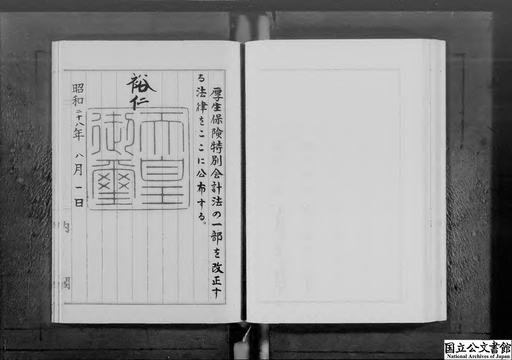 厚生保険特別会計法の一部を改正す
る法律をここに公布する。
裕仁
天皇
御璽
昭和二十八年 八月 一日
内閣
国立公文書館
National Archives of Japan